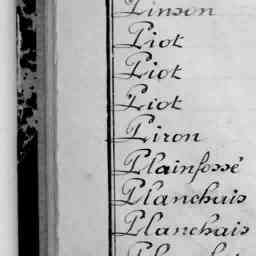 Pinson
Piot
Piot
Piot
Piron
Plainfossé
Planchais
Planchais